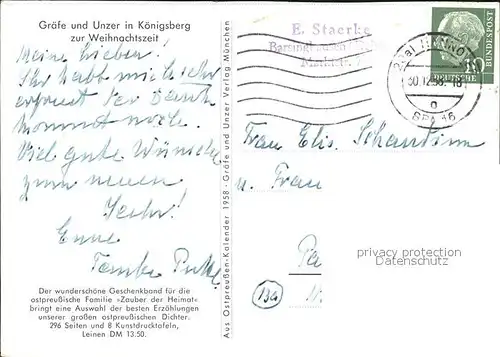 Gräfe und Unzer in Königsberg
zur Weihnachtszeit
Meine Lieben!
Ihr habt mich sehr
erfreut der Dank
kommt noch.
Viel gute Wünsche
zum neuen
Jahr!
Eure
Tante
Der wunderschöne Geschenkband für die
ostpreußische Familie »Zauber der Heimat«
bringt eine Auswahl der besten Erzählungen
unserer großen ostpreußischen Dichter.
296 Seiten und 8 Kunstdrucktafeln,
Leinen DM 13.50.
Aus Ostpreußen-Kalender 1958 · Gräfe und Unzer Verlag München
E. Staerke
Barsinghausen
HANNO
30.12.58.-18
g
10
DEUTSCHE
BUNDESPOST
Frau Elis.
u. Frau
privacy protection
Datenschutz
(13a)